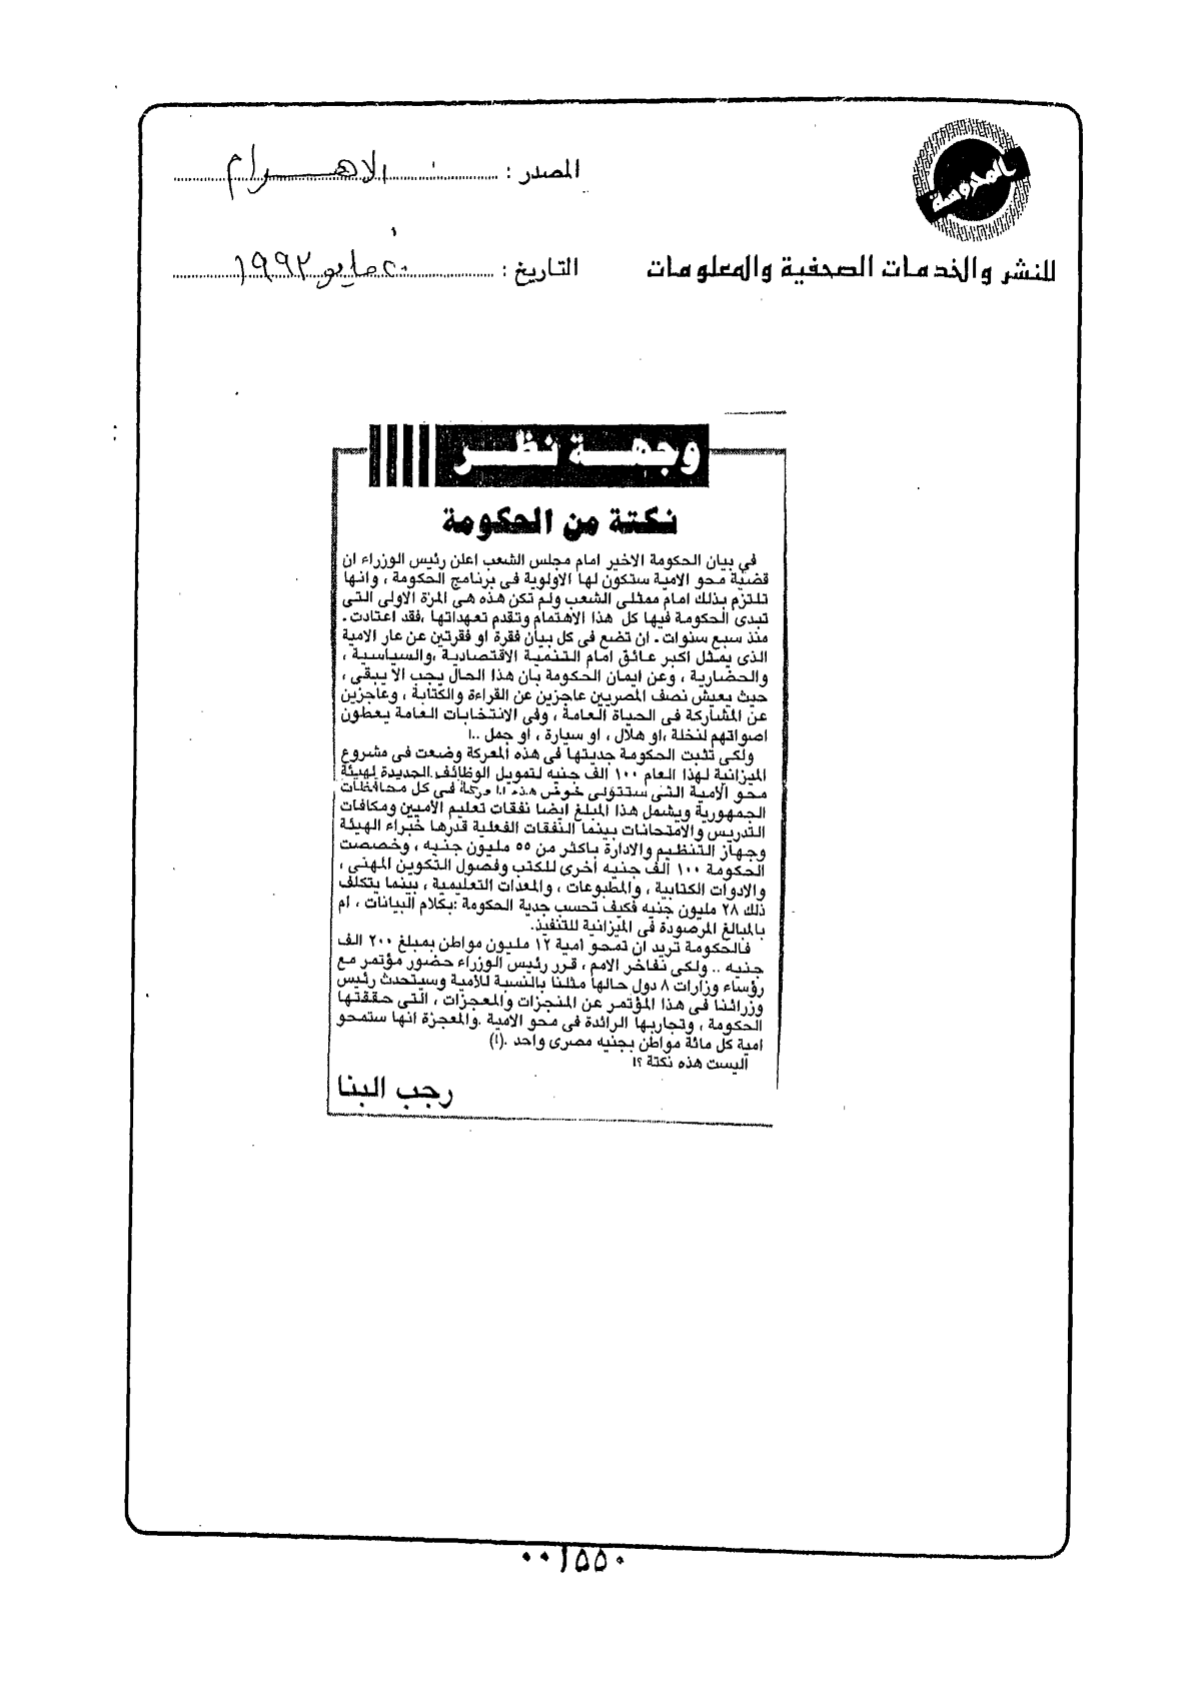 بالمحروسة
المصدر : الاهرام
للنشر والخدمات الصحفية والمعلومات
التاريخ : ٢٠ مايو ١٩٩٢
وجهة نظر
نكتة من الحكومة
في بيان الحكومة الاخير امام مجلس الشعب اعلن رئيس الوزراء ان
قضية محو الامية ستكون لها الاولوية فى برنامج الحكومة ، وانها
تلتزم بذلك امام ممثلى الشعب ولم تكن هذه هى المرة الاولى التى
تبدى الحكومة فيها كل هذا الاهتمام وتقدم تعهداتها ،فقد اعتادت .
منذ سبع سنوات . ان تضع فى كل بيان فقرة او فقرتين عن عار الامية
الذى يمثل اكبر عائق امام التنمية الاقتصادية ،والسياسية ،
والحضارية ، وعن ايمان الحكومة بان هذا الحال يجب الا يبقى ،
حيث يعيش نصف المصريين عاجزين عن القراءة والكتابة ، وعاجزين
عن المشاركة فى الحياة العامة ، وفى الانتخابات العامة يعطون
اصواتهم لنخلة ،او هلال ، او سيارة ، او جمل ..!
ولكى تثبت الحكومة جديتها فى هذه المعركة وضعت فى مشروع
الميزانية لهذا العام ١٠٠ الف جنيه لتمويل الوظائف الجديدة لهيئة
محو الامية التى ستتولى خوض هذه المعركة فى كل محافظات
الجمهورية ويشمل هذا المبلغ ايضا نفقات تعليم الاميين ومكافات
التدريس والامتحانات بينما النفقات الفعلية قدرها خبراء الهيئة
وجهاز التنظيم والادارة باكثر من ٥٥ مليون جنيه ، وخصصت
الحكومة ١٠٠ الف جنيه أخرى للكتب وفصول التكوين المهنى ،
والادوات الكتابية ، والمطبوعات ، والمعدات التعليمية ، بينما يتكلف
ذلك ٢٨ مليون جنيه فكيف تحسب جدية الحكومة :بكلام البيانات ، ام
بالمبالغ المرصودة فى الميزانية للتنفيذ.
فالحكومة تريد ان تمحو امية ١٢ مليون مواطن بمبلغ ٢٠٠ الف
جنيه .. ولكى نفاخر الامم ، قرر رئيس الوزراء حضور مؤتمر مع
رؤساء وزارات ٨ دول حالها مثلنا بالنسبة للأمية وسيتحدث رئيس
وزرائنا فى هذا المؤتمر عن المنجزات والمعجزات ، التى حققتها
الحكومة ، وتجاربها الرائدة فى محو الامية .والمعجزة انها ستمحو
امية كل مائة مواطن بجنيه مصرى واحد .(!)
اليست هذه نكتة ؟!
رجب البنا